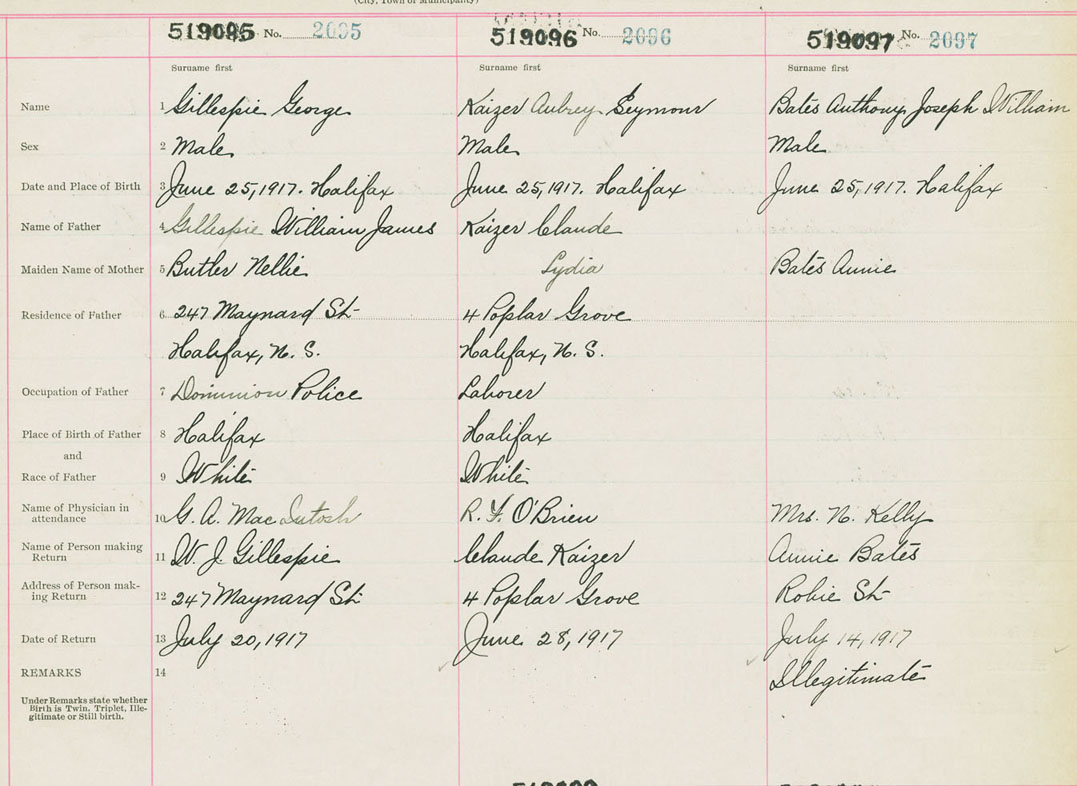 (City, Town or Municipality)
519095 No. 2095 519096 No. 2096 519097 No. 2097
Surname first Surname first Surname first
Name 1 Gillespie George Kaizer Aubrey Seymour Bates Anthony Joseph William
Sex 2 Male Male Male
Date and Place of Birth 3 June 25, 1917. Halifax June 25, 1917. Halifax June 25, 1917. Halifax
Name of Father 4 Gillespie William James Kaizer Claude
Maiden Name of Mother 5 Butler Nellie Lydia Bates Annie
Residence of Father 6 247 Maynard St. 4 Poplar Grove
Halifax, N. S. Halifax, N. S.
Occupation of Father 7 Dominion Police Laborer
Place of Birth of Father 8 Halifax Halifax
and
Race of Father 9 White White
Name of Physician in
attendance 10 G. A. MacIntosh R. F. O'Brien Mrs. N. Kelly
Name of Person making
Return 11 W. J. Gillespie Claude Kaizer Annie Bates
Address of Person mak-
ing Return 12 247 Maynard St. 4 Poplar Grove Robie St.
Date of Return 13 July 20, 1917 June 28, 1917 July 14, 1917
REMARKS 14 Illegitimate
Under Remarks state whether
Birth is Twin, Triplet, Ille-
gitimate or Still birth.